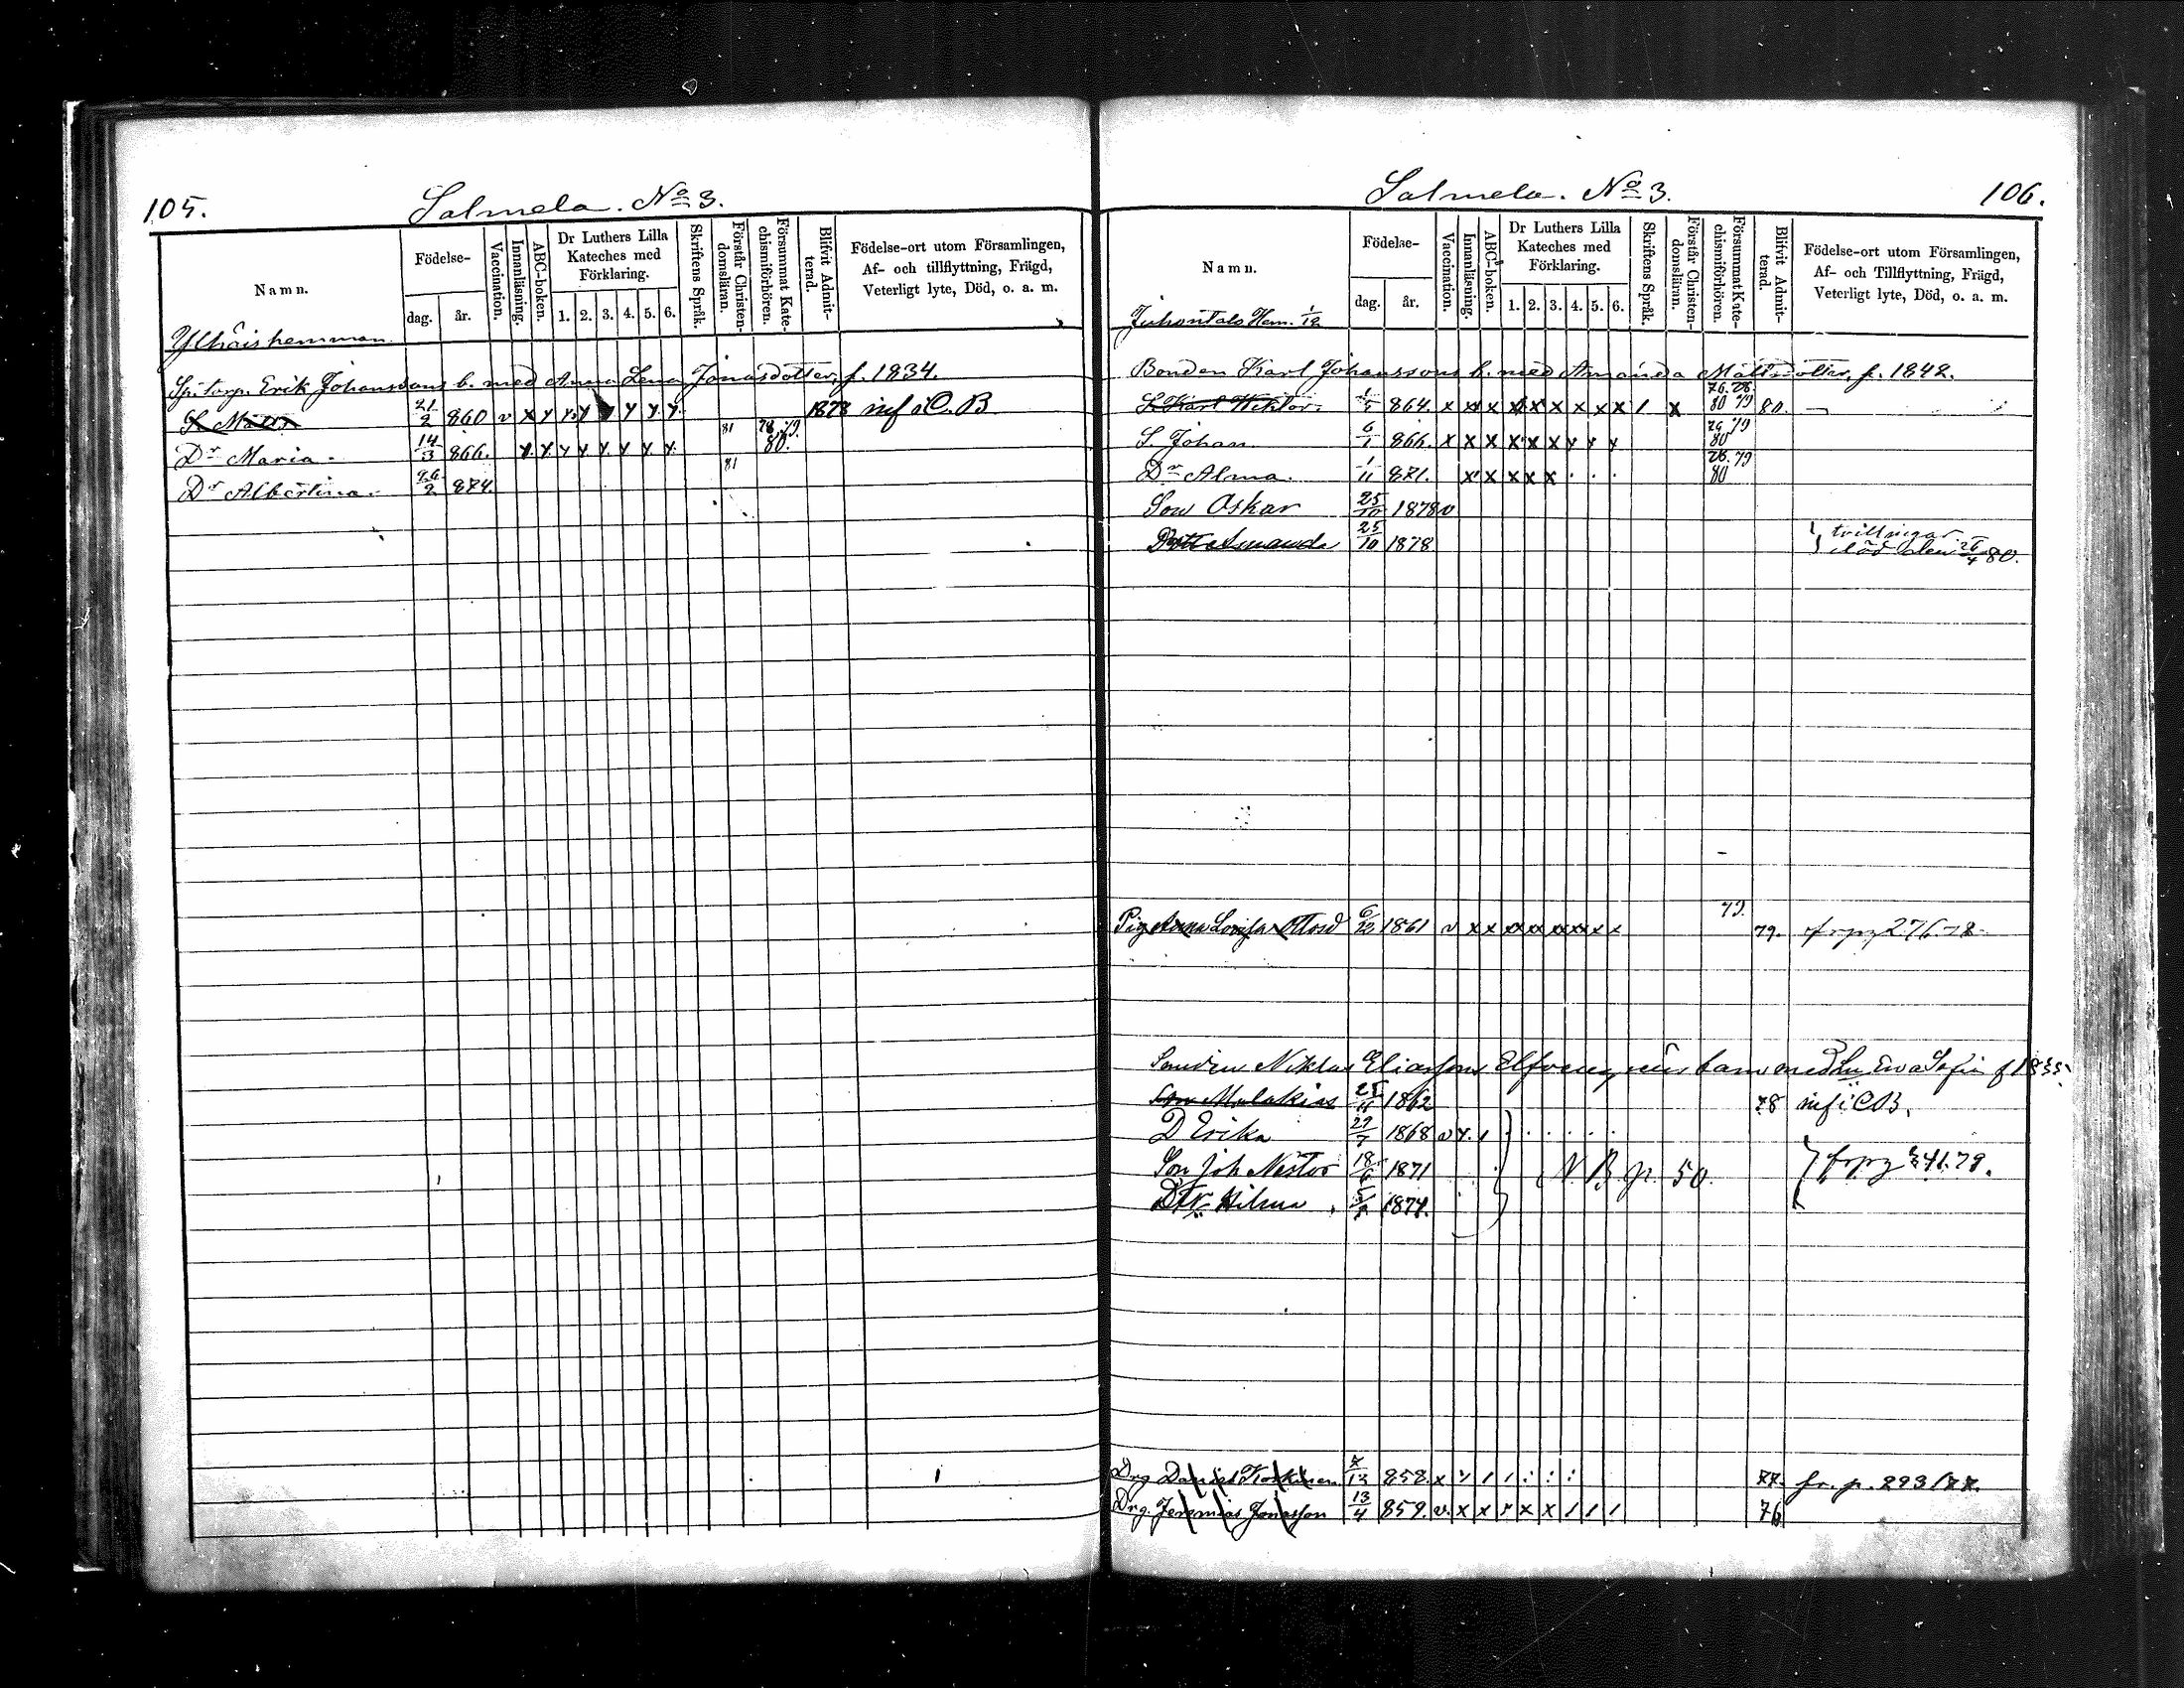 105.
Salmela. No 3.
Namn.
Födelse-
dag.
år.
Vaccination.
Innanläsning.
ABC-boken.
Dr Luthers Lilla
Kateches med
Förklaring.
1. 2. 3. 4. 5. 6.
Skriftens Språk.
Förstår Christen-
domsläran.
Försummat Kate-
chismiförhören.
Blifvit Admit-
terad.
Födelse-ort utom Församlingen,
Af- och tillflyttning, Frägd,
Veterligt lyte, Död, o. a. m.
Erik Johanssons b. med Anna Lena Jonasdotter, f. 1834.
S. Matts 21/2 860 v x y y y y y y y 1878 inf i C. B
Dr Maria. 14/3 866. y y y y y y y y 81 78. 79. 80.
Dr Albertina. 2 874. 81
Salmela. No 3.
106.
Namn.
Födelse-
dag.
år.
Vaccination.
Innanläsning.
ABC-boken.
Dr Luthers Lilla
Kateches med
Förklaring.
1. 2. 3. 4. 5. 6.
Skriftens Språk.
Förstår Christen-
domsläran.
Försummat Kate-
chismiförhören.
Blifvit Admit-
terad.
Födelse-ort utom Församlingen,
Af- och Tillflyttning, Frägd,
Veterligt lyte, Död, o. a. m.
Juhontalo Hem. 1/12
Bonden Karl Johanssons b. med Amanda Mattsdotter, f. 1842.
S. Karl Wiktor. 864. x x x x x x x x x / x 76. 78. 80 79 80.
S. Johan 6/1 866. x x x x x x y y y 79 80
Dr Alma. 1/11 871. x x x x x . . . 78. 79 80
Son Oskar 25/10 1878 v
Dott Amanda 25/10 1878 tvillingar
död den 26/4 80.
Pig Anna Lovisa Ottosd 1861 v x x x x x x x x 79. 79. fr pg 276. 78
Niklas Eliasson Elfveng barn med Eva Sofia f 1835
Son Malakias 25/11 1862 78 inf i C B.
D Erika 29/7 1868 v y. /
Son Joh Nestor 18/6 1871 N. B. p. 50. fr pg 341. 79.
Dtr Hilma 1874.
Drg Daniel Koskinen 858. x 77. fr. p. 293/77.
Drg. Jeremias Jonasson 13/4 859. v. x x x x x / / / 76